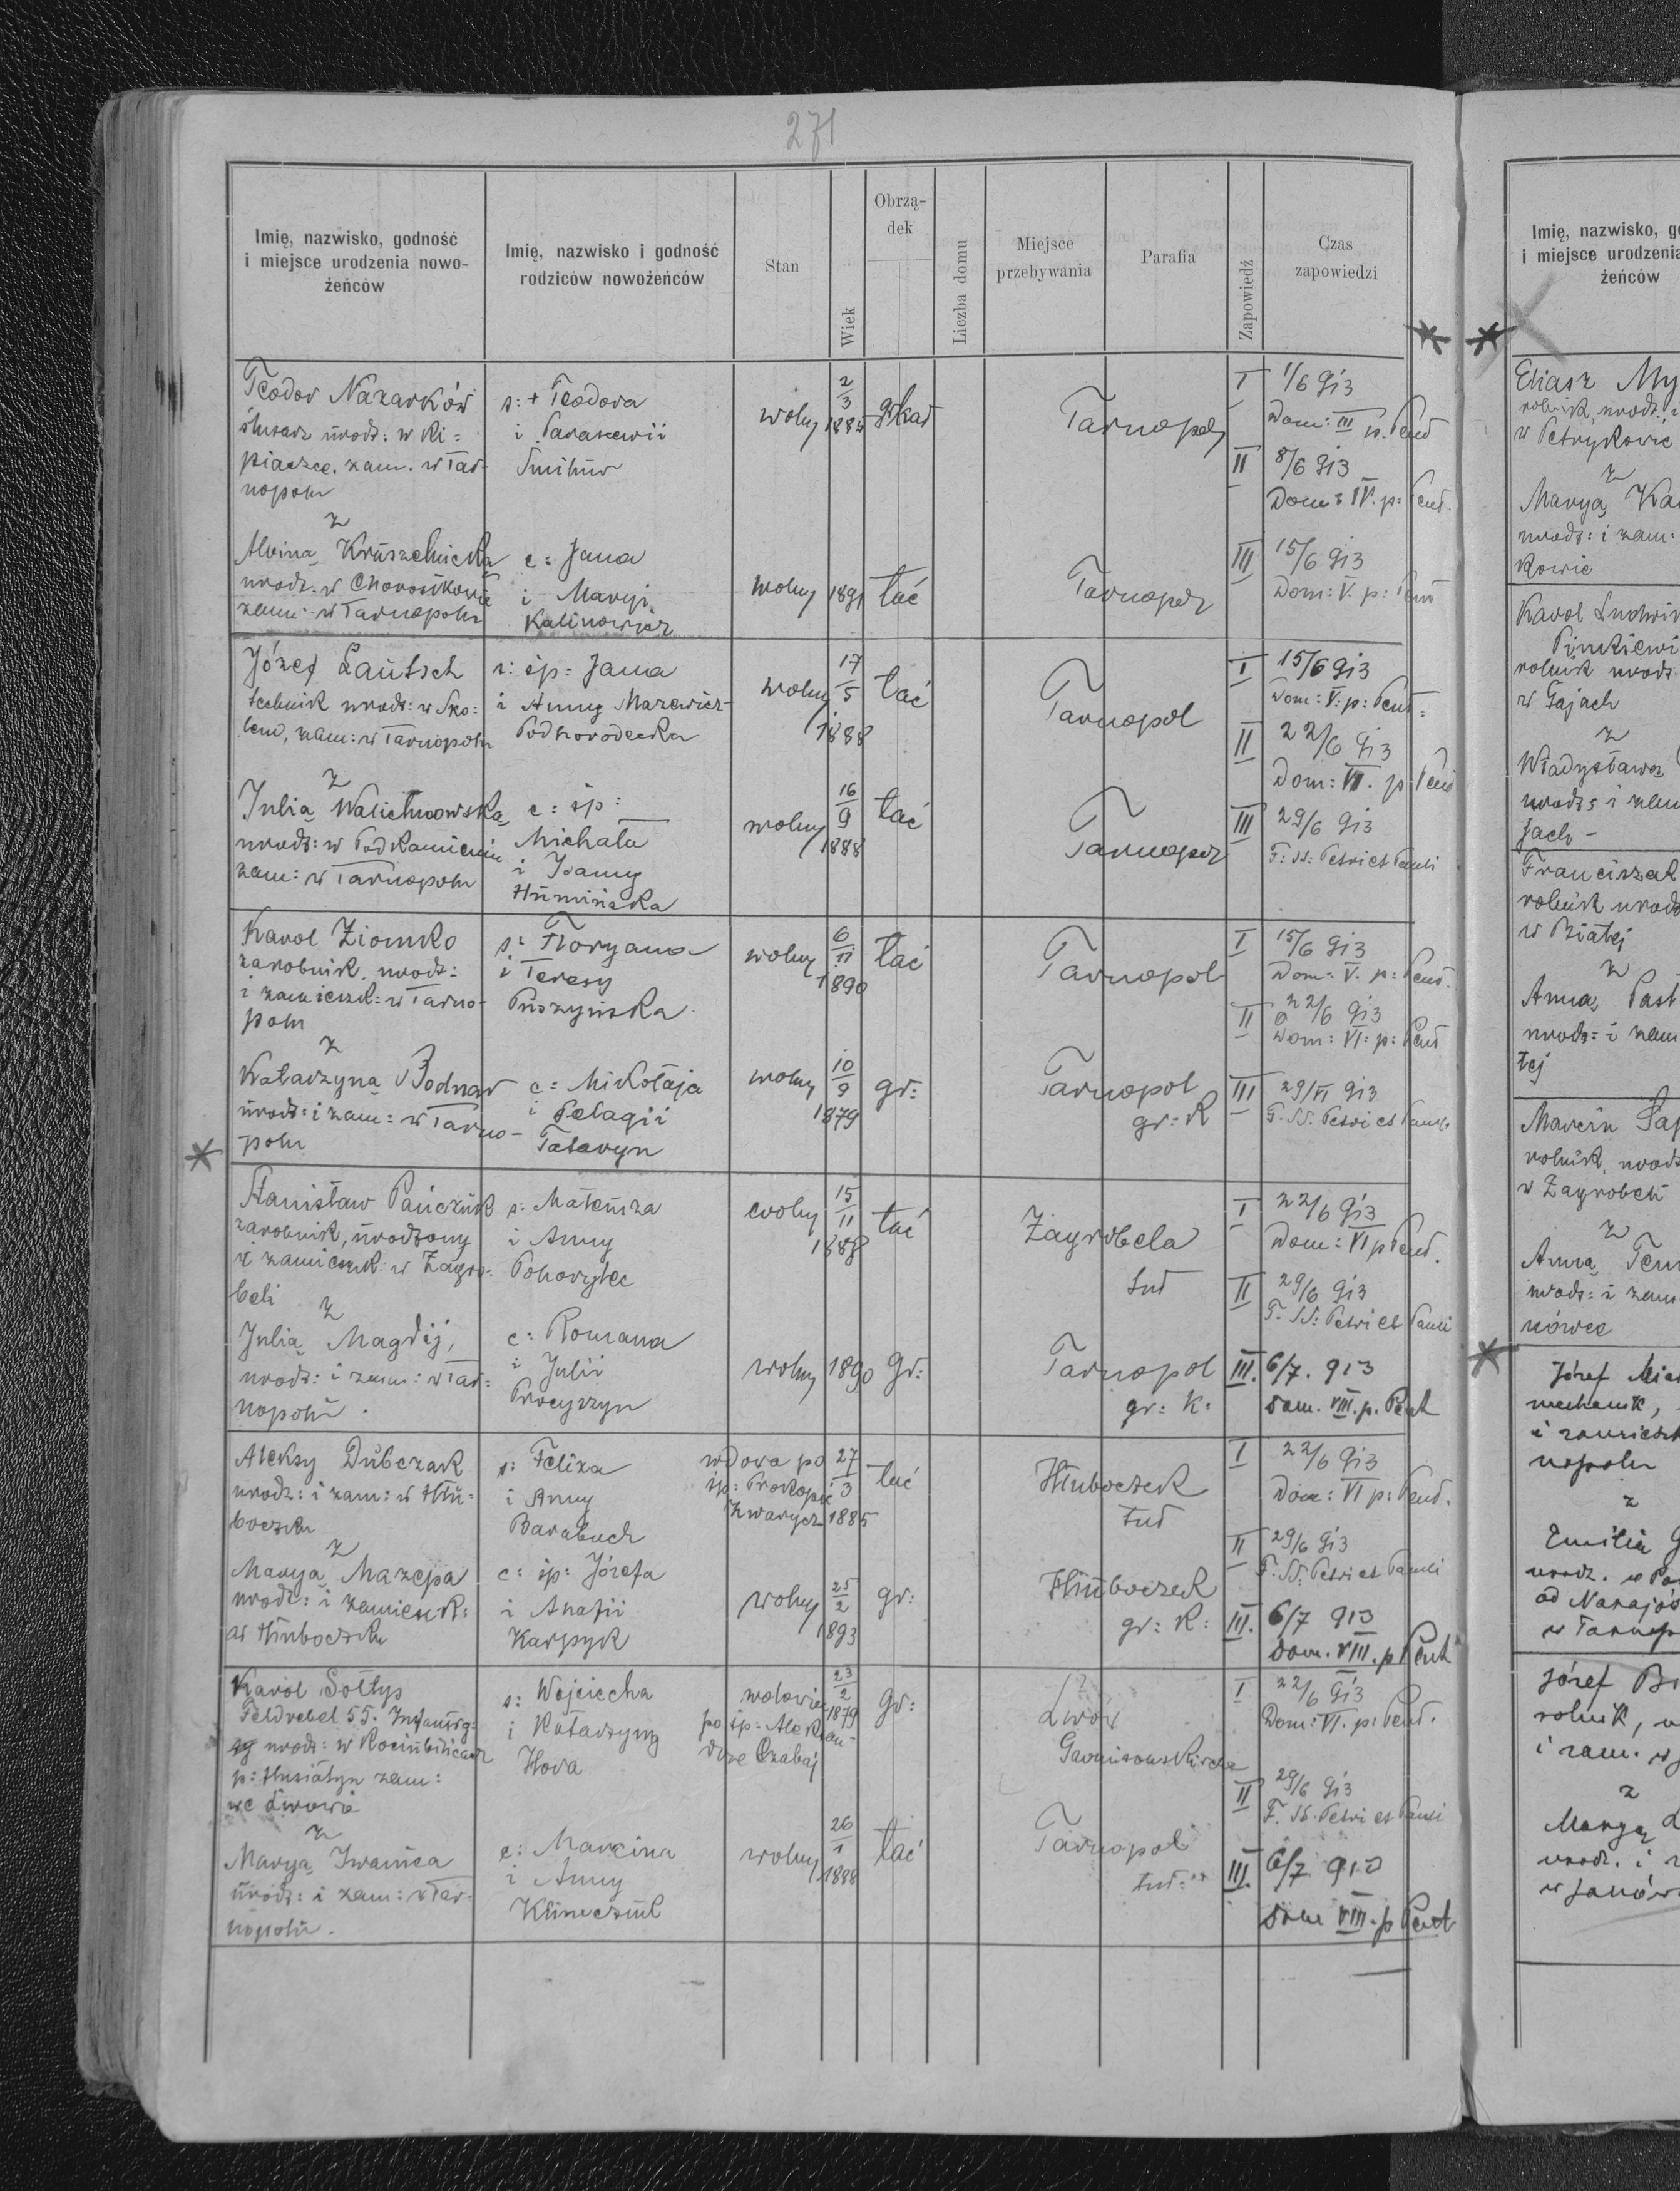 271
Imię, nazwisko, godność
i miejsce urodzenia nowo-
żeńców
Imię, nazwisko i godność
rodziców nowożeńców
Stan
Wiek
Obrzą-
dek
Liczba domu
Miejsce
przebywania
Parafia
Zapowiedź
Czas
zapowiedzi
Teodor Nazarków
ślusarz urodz: w Ki=
piaczce. zam. w Tar-
nopolu
s: + Teodora
i Paraskewii
wolny
2/3
1885
Tarnopol
I 1/6 913
Dom: III p. Pent
II 8/6 913
Dom: IV. p: Pent.
z
Alviną Kruszelnicką
urodz. w Chorostkowie
zam: w Tarnopolu
c: Jana
i Maryi
Kalinowicz
wolny
1891
łać
Tarnopol
III 15/6 913
Dom: V. p: Pent
Józef Lautsch
technik urodz: w Sko=
lem, zam: w Tarnopolu
s: śp: Jana
i Anny Mazewicz-
Podhorodecka
wolny
17/5
1888
łać
Tarnopol
I 15/6 913
Dom: V: p: Pent=
II 22/6 913
Dom: VI. p: Pent
z
Julią Walichnowską
urodz: w Podkamieniu
zam: w Tarnopolu
c: śp:
Michała
i Joanny
Humińska
wolny
16/9
1888
łać
Tarnopol
III 29/6 913
F: SS: Petri et Pauli
Karol Ziomko
zarobnik, urodz:
i zamieszk: w Tarno-
polu
s: Floryana
i Teresy
Puszyńska
wolny
6/II
1890
łać
Tarnopol
I 15/6 913
Dom: V. p: Pent.
II 22/6 913
Dom: VI: p: Pent
z
Katarzyną Bodnar
urodz: i zam: w Tarno-
polu
c: Mikołaja
i Pelagii
Tataryn
wolny
10/9
1879
gr:
Tarnopol
gr: K
III 29/VI 913
F. SS. Petri et Pauli
Stanisław Pańczuk
zarobnik, urodzony
i zamieszk: w Zagro=
beli
s: Mateusza
i Anny
Pohorylec
wolny
15/11
1888
łać
Zagrobela
tut
I 22/6 913
Dom: VI p Pent.
II 29/6 913
F. SS: Petri et Pauli
z
Julią Magdij,
urodz: i zam: w Tar=
nopolu.
c: Romana
i Julii
Procyszyn
wolny
1890
gr:
Tarnopol
gr: K:
III. 6/7. 913
Dom. VIII. p. Pent
Aleksy Dubczak
urodz: i zam: w Hłu=
boczku
s: Felixa
i Anny
Barabuch
wdowa po
śp: Prokopie
Zwarycz
27/3
1885
łać
Hłuboczek
tut
I 22/6 913
Dom: VI p: Pent.
II 29/6 913
F. SS: Petri et Pauli
z
Maryą Mazepa
urodz: i zamieszk:
w Hłuboczku
c: śp: Józefa
i Anafii
Karpyk
wolny
25/2
1893
gr:
Hłuboczek
gr: K:
III. 6/7 913
Dom. VIII. p Pent
Karol Sołtys
Feldvebel 55. Infanterg=
urodz: w Kociubińcach
p: Husiatyn zam:
we Lwowie
s: Wojciecha
i Katarzyny
Hora
wdowiec
po śp: Aleksan-
drze Czabaj
23/2
1879
gr:
Lwow
Garnisonskirche
I 22/6 913
Dom: VI. p: Pent.
II 29/6 913
F. SS. Petri et Pauli
z
Maryą Iwanica
urodz: i zam: w Tar=
nopolu.
c: Marcina
i Anny
Klimczuk
wolny
26/1
1888
łać
Tarnopol
tut:
III. 6/7 913
Dom VIII. p Pent
Imię, nazwisko, go
i miejsce urodzenia
żeńców
Eliasz My
rolnik, urodz:
w Petrykowie
z
Maryą Ka
urodz: i zam:
kowie
Karol Ludwik
Pinkiewi
rolnik urodz
w Gajach
z
Władysławą
urodz: i zam
jach-
Franciszek
rolnik urodz
w Białej
z
Anną Past
urodz: i zam
łej
Marcin Sap
rolnik, urodz
w Zagrobeli
z
Anną Tem
urodz: i zam
nówce
Józef Mia
mechanik,
i zamieszk
nopolu
z
Emilia G
urodz. w Po
od Narajów
w Tarnop
Józef Bi
rolnik, u
i zam. w
z
Maryą
urodz. i
w Janów